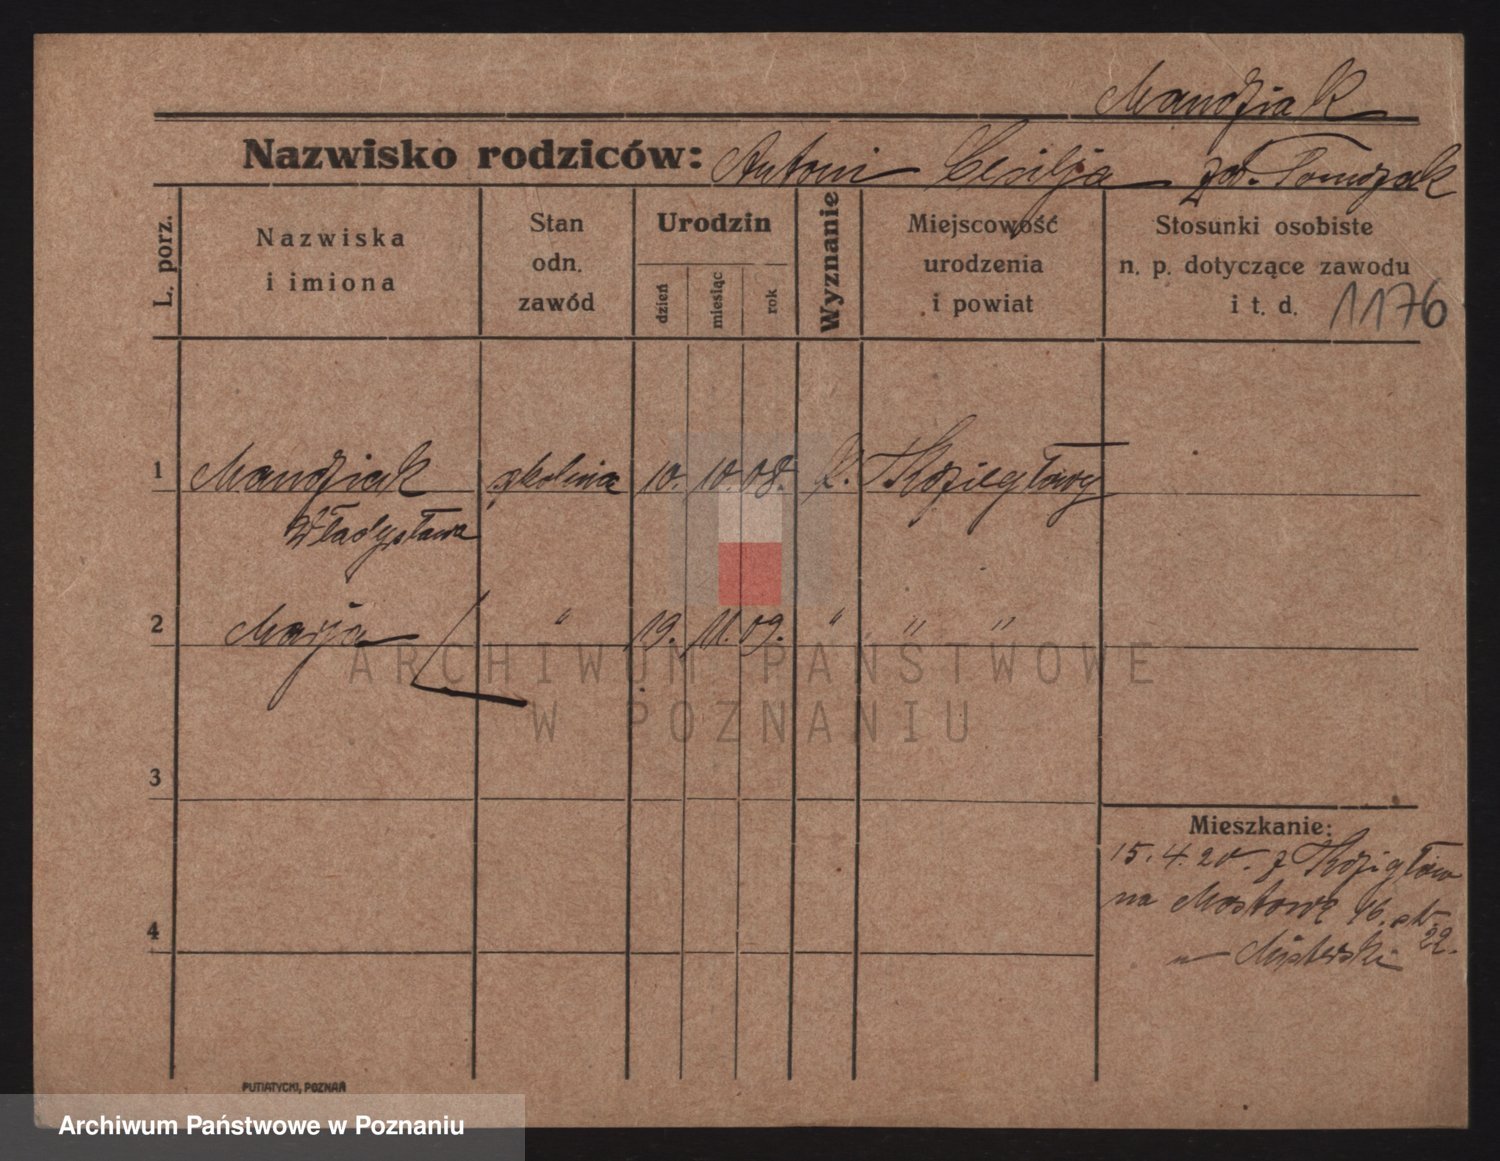 Mandziak
Nazwisko rodziców: Antoni Cecilja zd. Tomczak
L. porz.
Nazwiska
i imiona
Stan
odn.
zawód
Urodzin
dzień
miesiąc
rok
Wyznanie
Miejscowość
urodzenia
i powiat
Stosunki osobiste
n. p. dotyczące zawodu
i t. d. 1176
1 Mandziak szkolna 10. 10. 08. k. Koziegłowy
Władysława
2 Marja " 19. 11. 09. " " "
ARCHIWUM PAŃSTWOWE
W POZNANIU
3
Mieszkanie:
15.4.20. z Kozigłów
na Mostowę 16. st.
22.
4
PUTIATYCKI, POZNAŃ
Archiwum Państwowe w Poznaniu